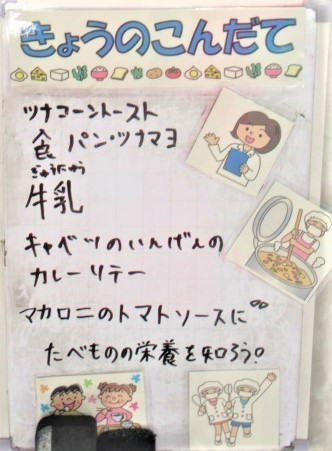 きょうのこんだて
ツナコーントースト
食パン・ツナマヨ
ぎゅうにゅう
牛乳
キャベツのいんげんの
カレーソテー
マカロニのトマトソースに
たべものの栄養を知ろう。